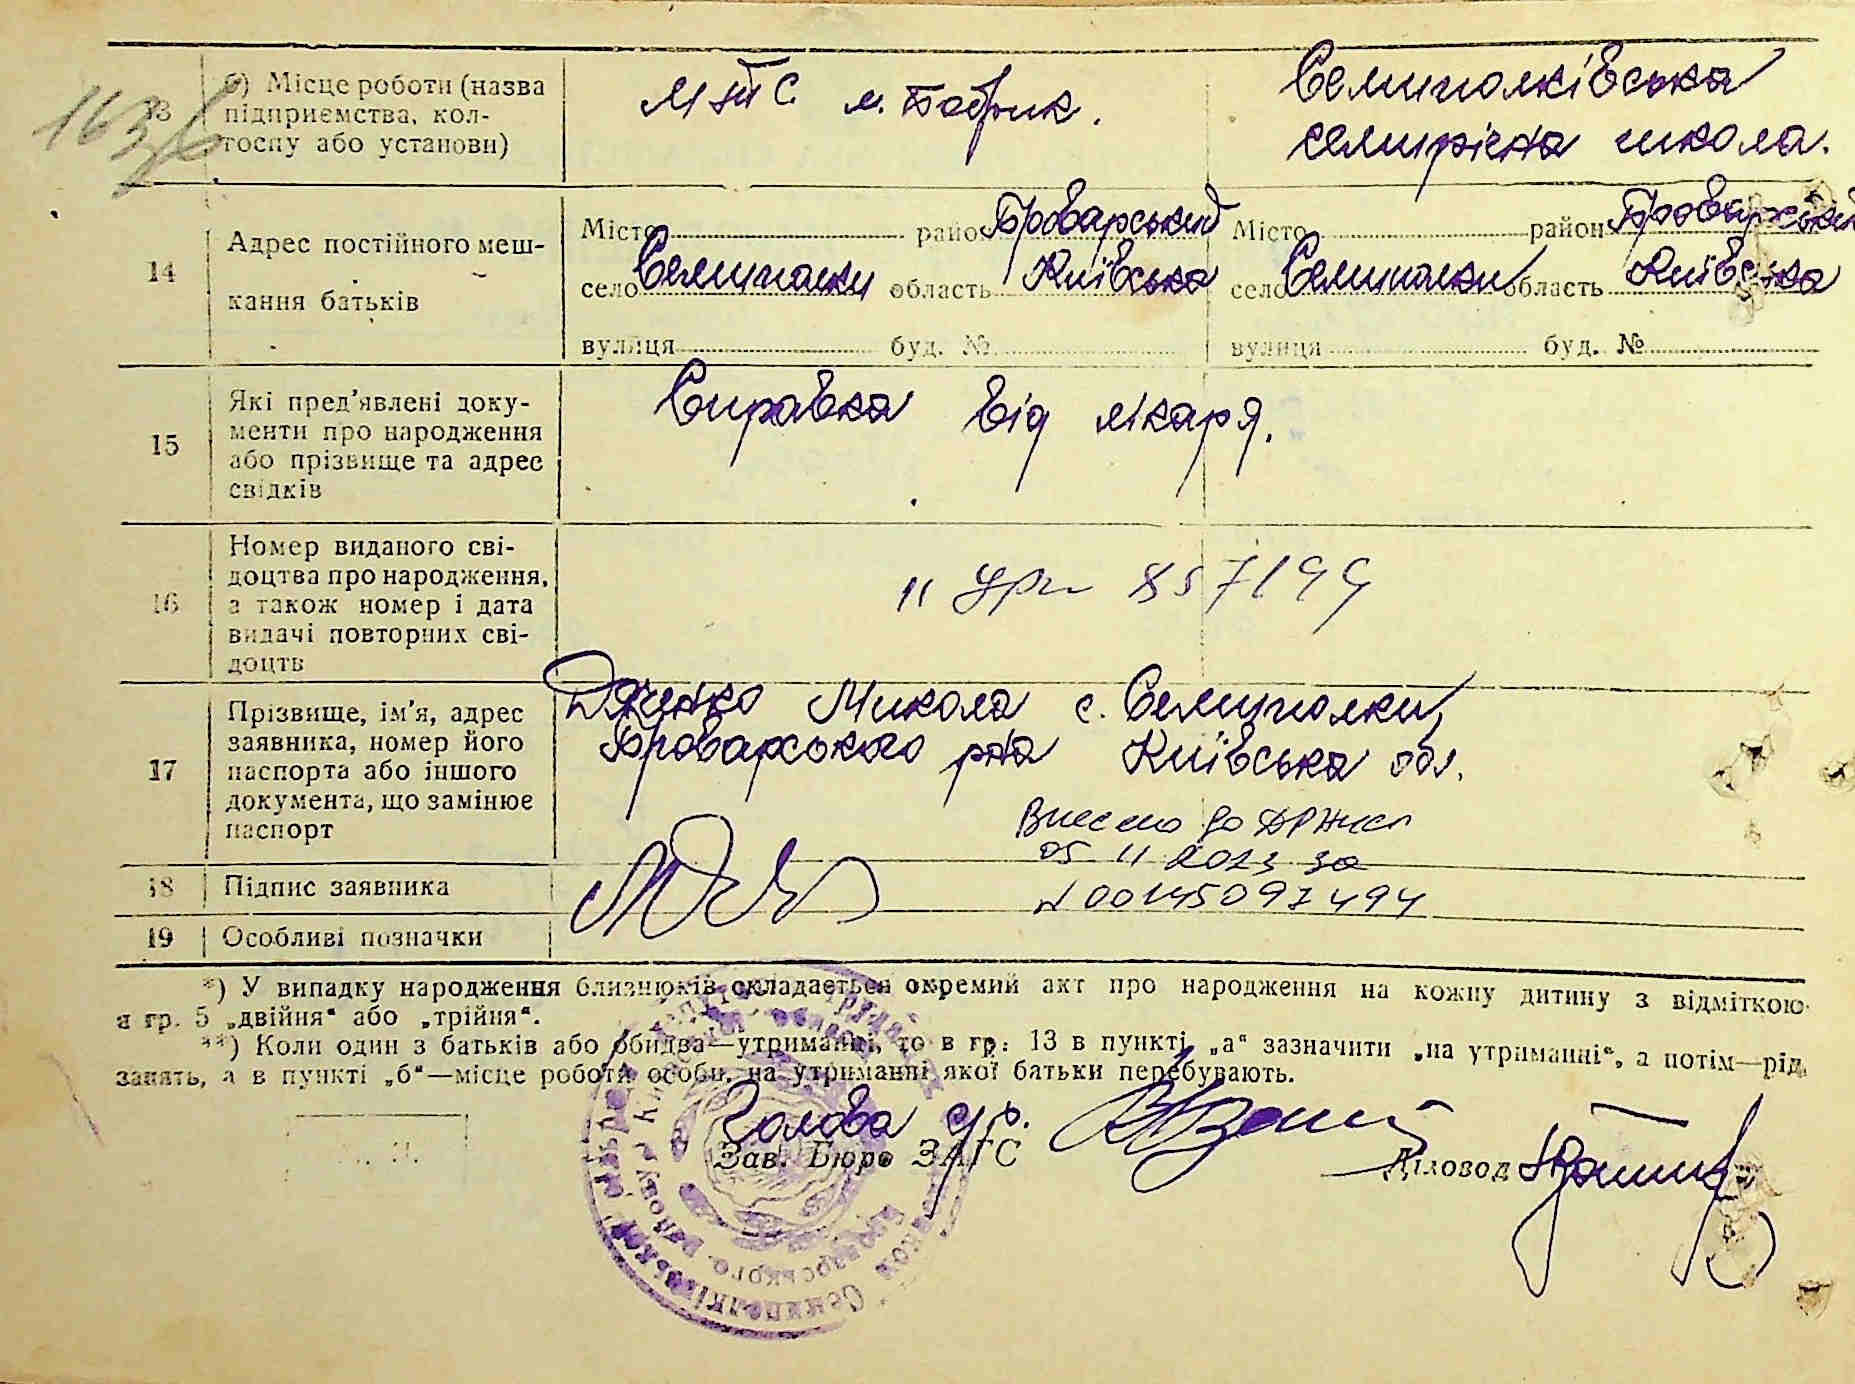 163
13
б) Місце роботи (назва
підприємства, кол-
госпу або установи)
МТС с. Бобрик.
Семиполківська
семирічна школа.
14
Адрес постійного меш-
кання батьків
Місто район Броварський
село Семиполки область Київська
вулиця буд. №
Місто район Броварський
село Семиполки область Київська
вулиця буд. №
15
Які пред’явлені доку-
менти про народження
або прізвище та адрес
свідків
Справка від лікаря.
16
Номер виданого сві-
доцтва про народження,
а також номер і дата
видачі повторних сві-
доцтв
857199
17
Прізвище, ім’я, адрес
заявника, номер його
паспорта або іншого
документа, що замінює
паспорт
Дяченко Микола с. Семиполки,
Броварського р-на Київська обл.
Внесено до
05 11 2023 за
N 00145097494
18
Підпис заявника
19
Особливі позначки
*) У випадку народження близнюків складається окремий акт про народження на кожну дитину з відміткою
в гр. 5 „двійня“ або „трійня“.
**) Коли один з батьків або обидва—утриманці, то в гр. 13 в пункті „а“ зазначити „на утриманні“, а потім—рід
занять, а в пункті „б“—місце роботи особи, на утриманні якої батьки перебувають.
Голова с/р.
Зав. Бюро ЗАГС
Діловод
М. П.